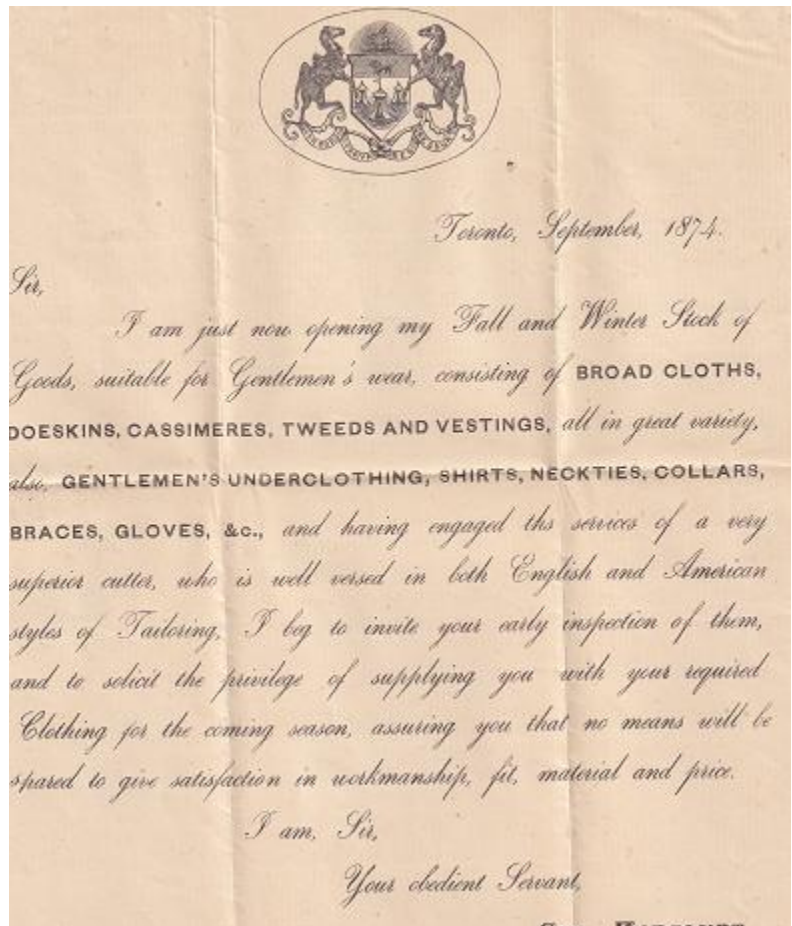 Toronto, September, 1874.
Sir,
I am just now opening my Fall and Winter Stock of
Goods, suitable for Gentlemen's wear, consisting of BROAD CLOTHS,
DOESKINS, CASSIMERES, TWEEDS AND VESTINGS, all in great variety,
also, GENTLEMEN'S UNDERCLOTHING, SHIRTS, NECKTIES, COLLARS,
BRACES, GLOVES, &c., and having engaged ths services of a very
superior cutter, who is well versed in both English and American
styles of Tailoring, I beg to invite your early inspection of them,
and to solicit the privilege of supplying you with your required
Clothing for the coming season, assuring you that no means will be
spared to give satisfaction in workmanship, fit, material and price.
I am, Sir,
Your obedient Servant,